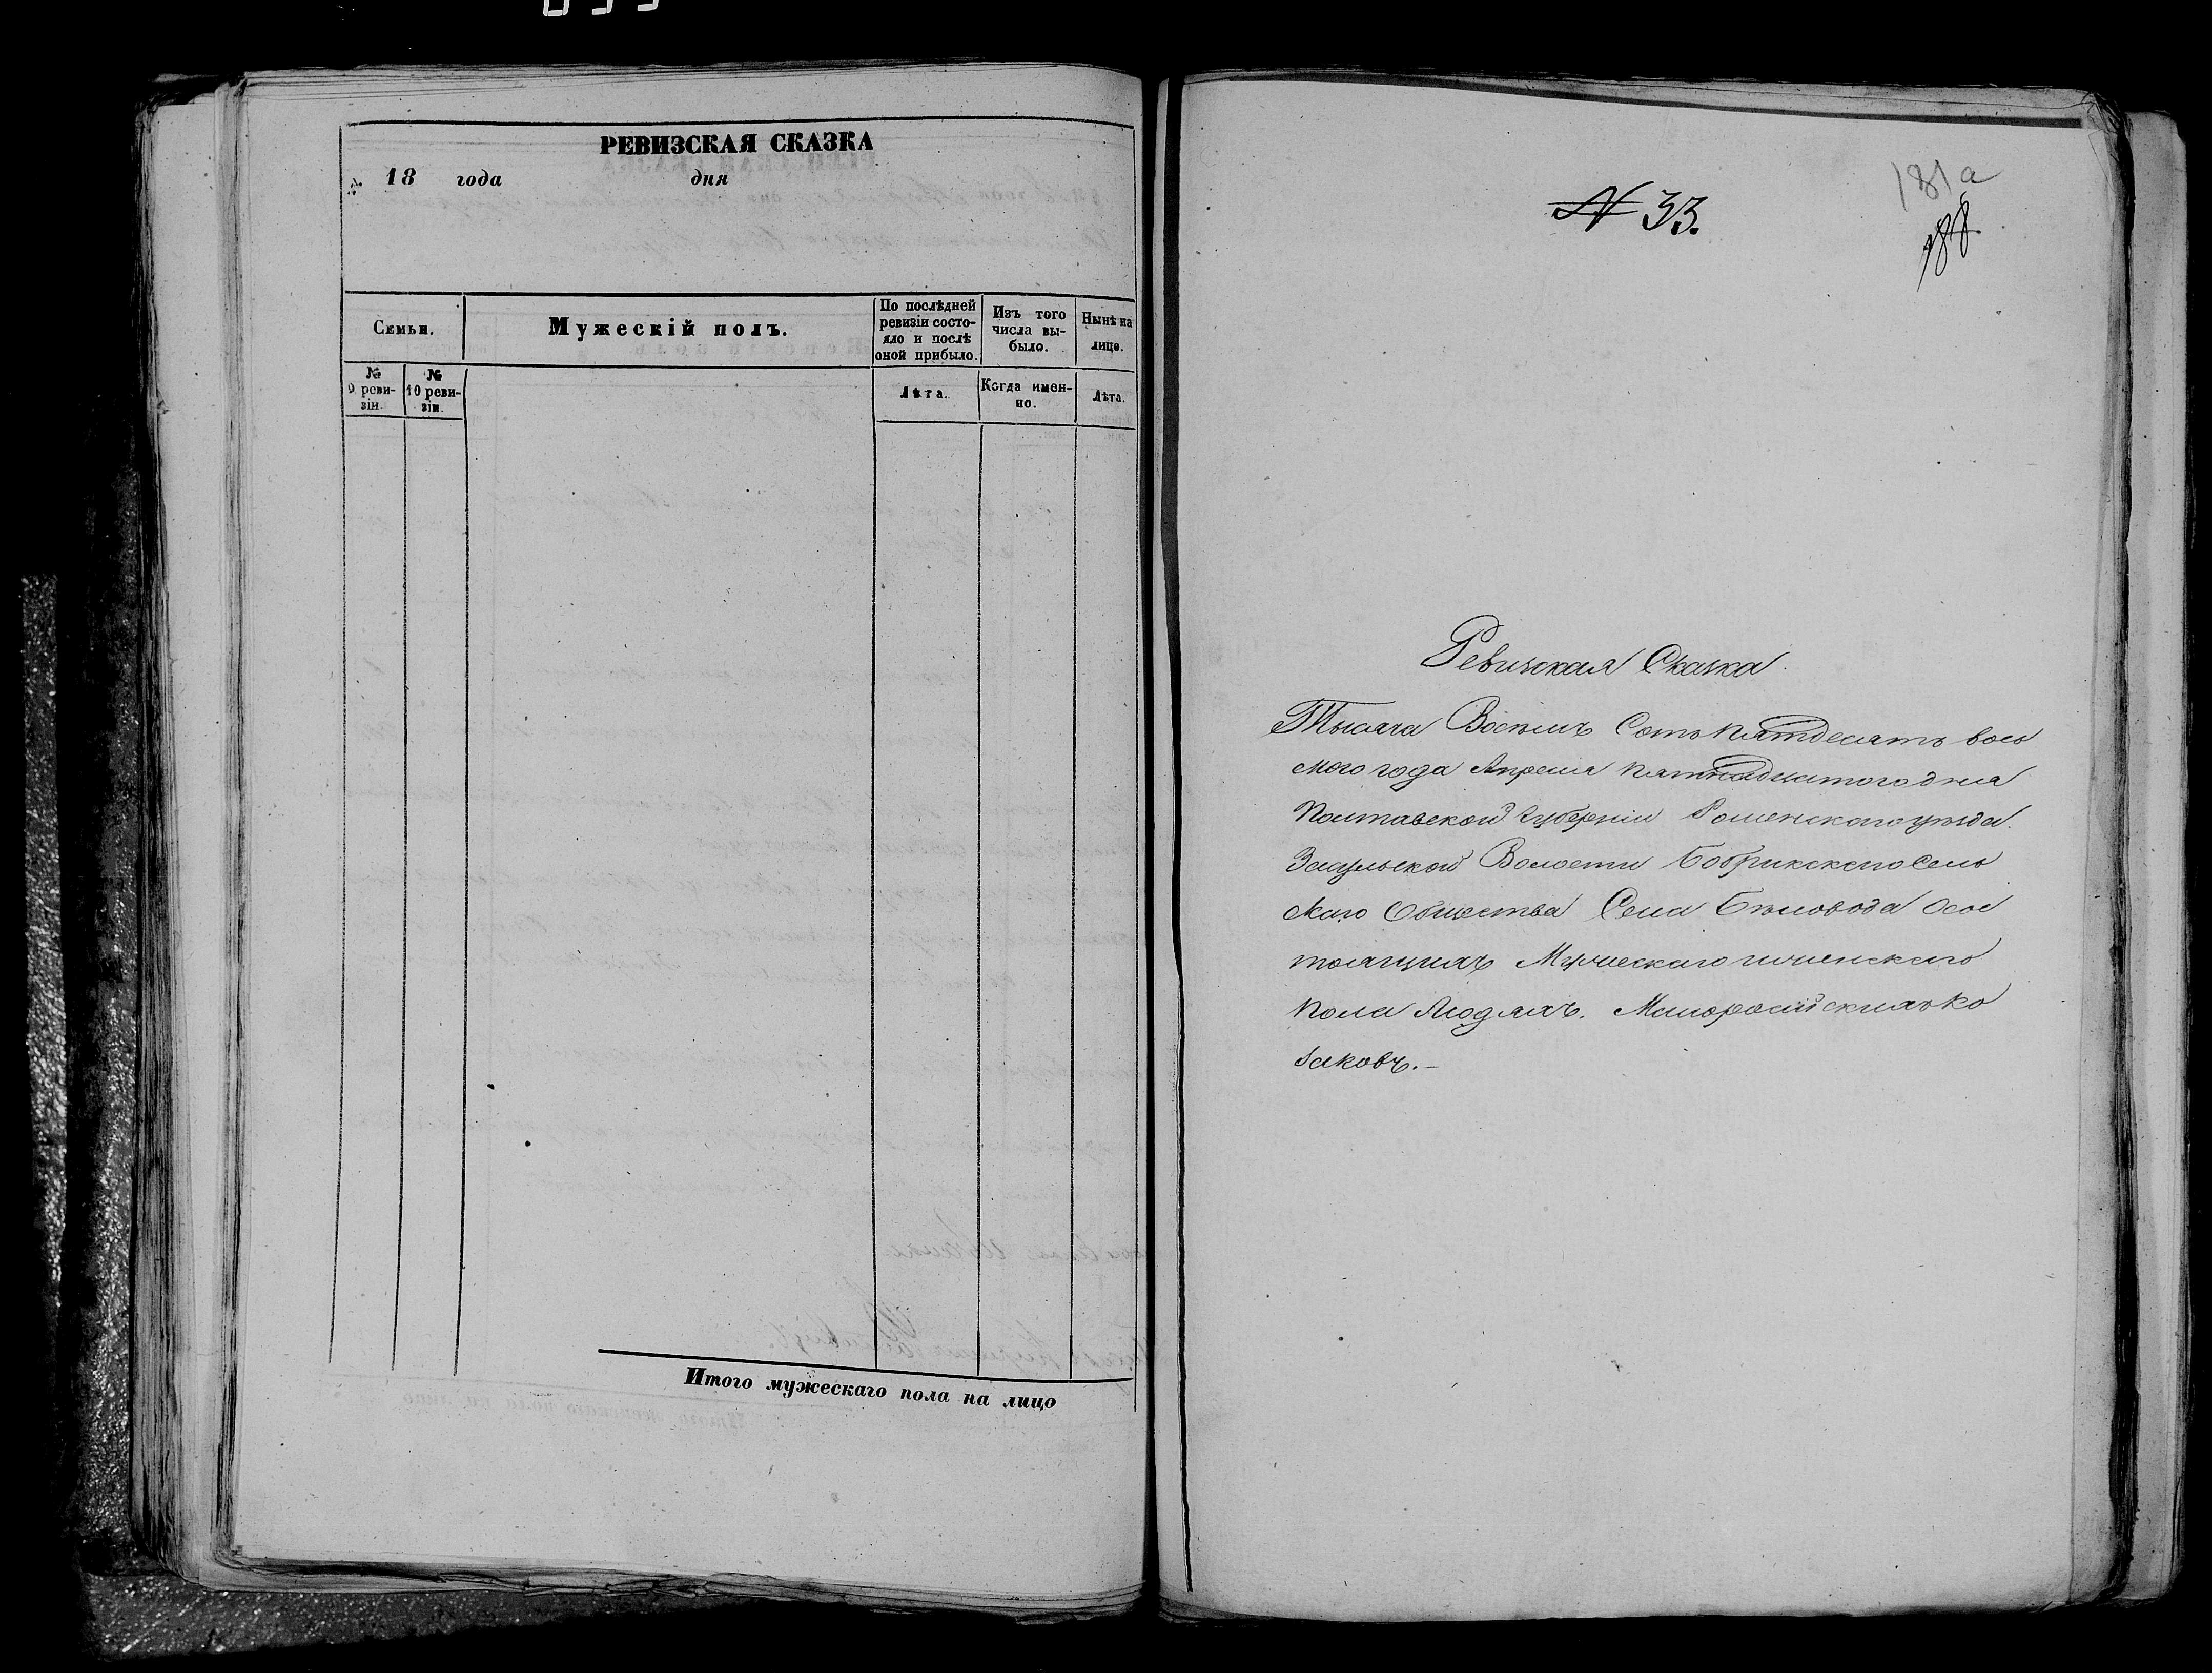 РЕВИЗСКАЯ СКАЗКА
18 года дня
Семьи.
Мужескій полъ.
По послѣдней
ревизіи состо-
яло и послѣ
оной прибыло.
Изъ того
числа вы-
было.
Нынѣ на
лицо.
№
9 реви-
зіи.
№
10 реви-
зіи.
Лѣта.
Когда имен-
но.
Лѣта.
Итого мужескаго пола на лицо
N 33.
181а
188
Ревизская Сказка.
Тысяча Восѣмъ Сотъ пятдесятъ вось
мого года Апреля пятнадцатого дня
Полтавской губерніи Роменского уѣзда.
Засульской Волости Бобрикского Сель
скаго Общества Села Бѣловода Осос
тоящихъ Мужескаго иженскаго
пола Людяхъ. Малоросійскихъ Ко
заковъ.–